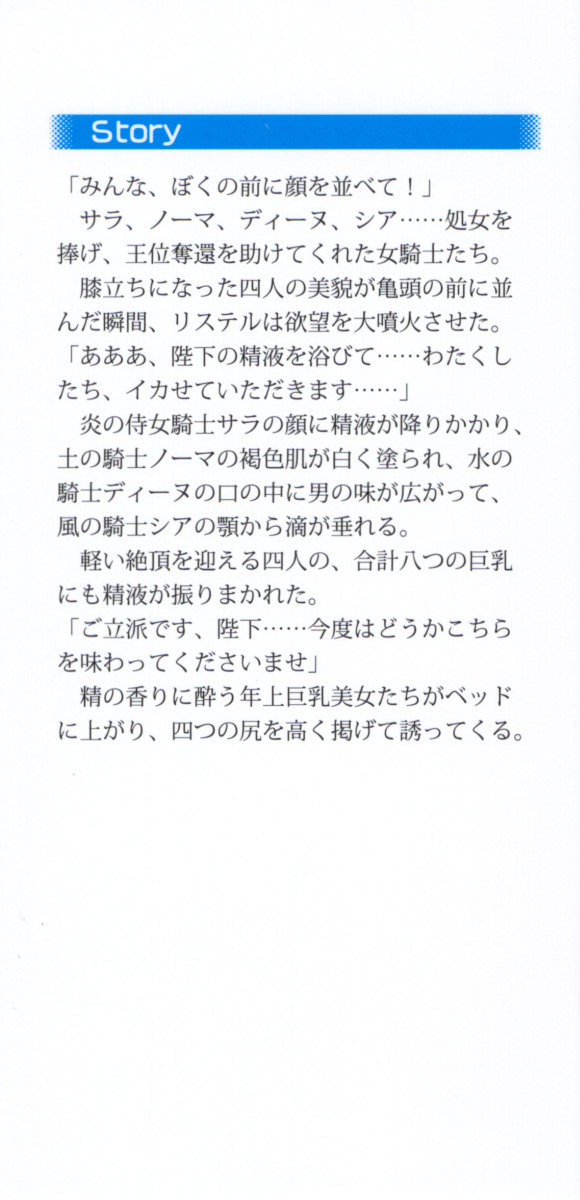 Story
「みんな、ぼくの前に顔を並べて！」
　サラ、ノーマ、ディーヌ、シア……処女を
捧げ、王位奪還を助けてくれた女騎士たち。
　膝立ちになった四人の美貌が亀頭の前に並
んだ瞬間、リステルは欲望を大噴火させた。
「あああ、陛下の精液を浴びて……わたくし
たち、イカせていただきます……」
　炎の侍女騎士サラの顔に精液が降りかかり、
土の騎士ノーマの褐色肌が白く塗られ、水の
騎士ディーヌの口の中に男の味が広がって、
風の騎士シアの顎から滴が垂れる。
　軽い絶頂を迎える四人の、合計八つの巨乳
にも精液が振りまかれた。
「ご立派です、陛下……今度はどうかこちら
を味わってくださいませ」
　精の香りに酔う年上巨乳美女たちがベッド
に上がり、四つの尻を高く掲げて誘ってくる。